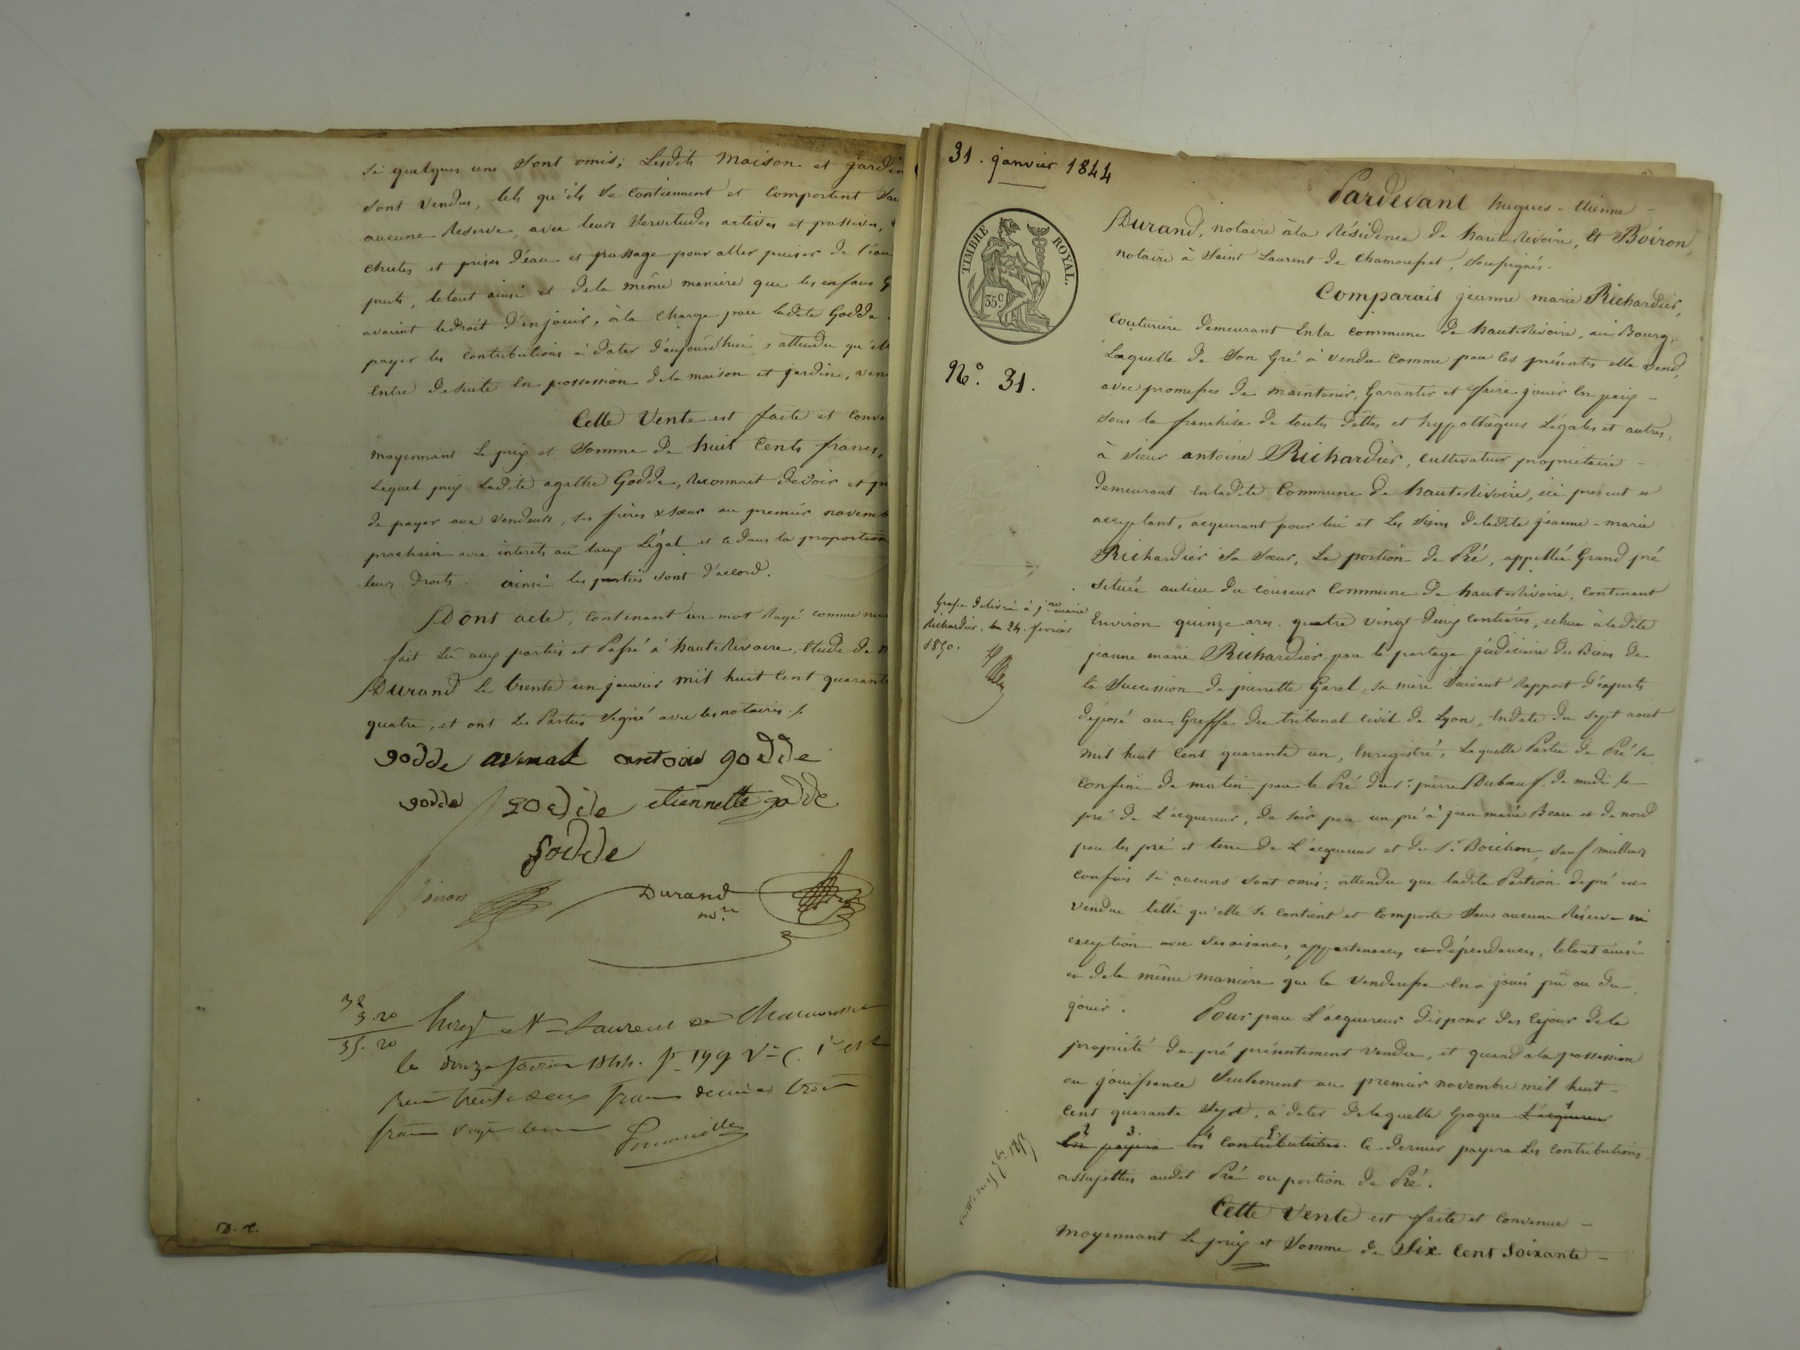 si quelques uns sont omis; Lesdits maison et jardin
sont vendus, tels qu'ils se contiennent et comportent San
aucune Reserve, avec leurs Servitudes actives et passives,
chutes et prises d'eau et passage pour aller puiser de l'eau
puits, le tout ainsi et de la même manière que les enfans G
avaient le droit d'en jouir, à la charge par ladite Godde
payer les contributions à dater d'aujourd'hui, attendu qu'ell
entre de suite en possession de la maison et jardin, ven
Cette Vente est faite et conve
moyennant Le prix et Somme de huit Cents francs,
Lequel prix Ladite agathe Godde, Reconnait devoir et pr
de payer aux vendeurs, ses frères & sœur au premier novemb
prochain avec intérêts au taux Légal et ce dans la proportion
leurs Droits. ainsi les parties sont d'accord.
Dont acte, contenant un mot Rayé comme nul
fait Lû aux parties et Passé à haute Rivoire, Etude de M
Durand Le trente un janvier mil huit Cent quarante
quatre, et ont Les Parties Signé avec les notaires ./.
godde antoine godde
godde godde etiennette godde
godde
Boiron Durand
nre
32
3.20
35.20
Enreg à St Laurent de Chamousset
le douze février 1844. f° 199 V° C. 1
reçu trente deux francs decime trois
francs vingt cent
D. R.
31. janvier 1844
TIMBRE ROYAL.
35 c
N.° 31.
Pardevant hugues-Etienne
Durand, notaire à la Résidence de haute Rivoire, & Boiron,
notaire à Saint Laurent de Chamousset, Soussignés.
Comparait jeanne marie Richardier,
Couturière demeurant En la commune de haute Rivoire, au Bourg,
Laquelle de Son Gré à vendu Comme par Ces présentes elle vend,
avec promesses de maintenir, Garantir et faire jouir En paix
Sous la franchise de toutes Dettes et hypothèques Légales et autres,
à Sieur antoine Richardier, Cultivateur propriétaire
demeurant En ladite Commune de haute Rivoire, ici present et
acceptant, acquerant pour lui et Les Siens de ladite jeanne-marie
Richardier Sa Sœur, La portion de Pré, appellée Grand pré
Située au lieu du couseur Commune de haute Rivoire, contenant
Environ quinze ares quatre vingt Deux Centiares, echue à ladite
jeanne marie Richardier par le partage judiciaire des Biens de
la Succession de pierrette Garel, Sa mère Suivant Rapport d'Experts
déposé au Greffe du tribunal Civil de Lyon, En date du Sept aout
mil huit Cent quarante un, Enregistré, Laquelle Partie de Pré Se
Confine de matin par le Pré du Sr. pierre Duboeuf, de midi le
pré de L'acquereur, de Soir par un pré à jean marie Beau et de nord
par les pré et terre de L'acquereur et du Sr. Boichon, Sauf meilleurs
Confins Si aucuns Sont omis; attendu que ladite Portion de pré est
Vendue telle qu'elle Se Contient et Comporte Sans aucune Réserve ni
exception avec Ses aisances, appartenances et dépendances, le tout ainsi
et de la même manière que la Venderesse En a joui pû ou du
jouir. Pour par L'acquereur disposer Des Cejour de la
propriété du pré présentement Vendu, et quand a la possession
ou jouissance Seulement au premier novembre mil huit
Cent quarante Sept, à dater de laquelle Epoque L'acquereur
En payera les contributions. Ce dernier payera Les Contributions
assujetties audit Pré ou portion de Pré.
Cette Vente est faite et Convenue
moyennant Le prix et Somme de Six Cent Soixante
Grosse délivrée à jne marie
Richardier, le 24. fevrier
1850.